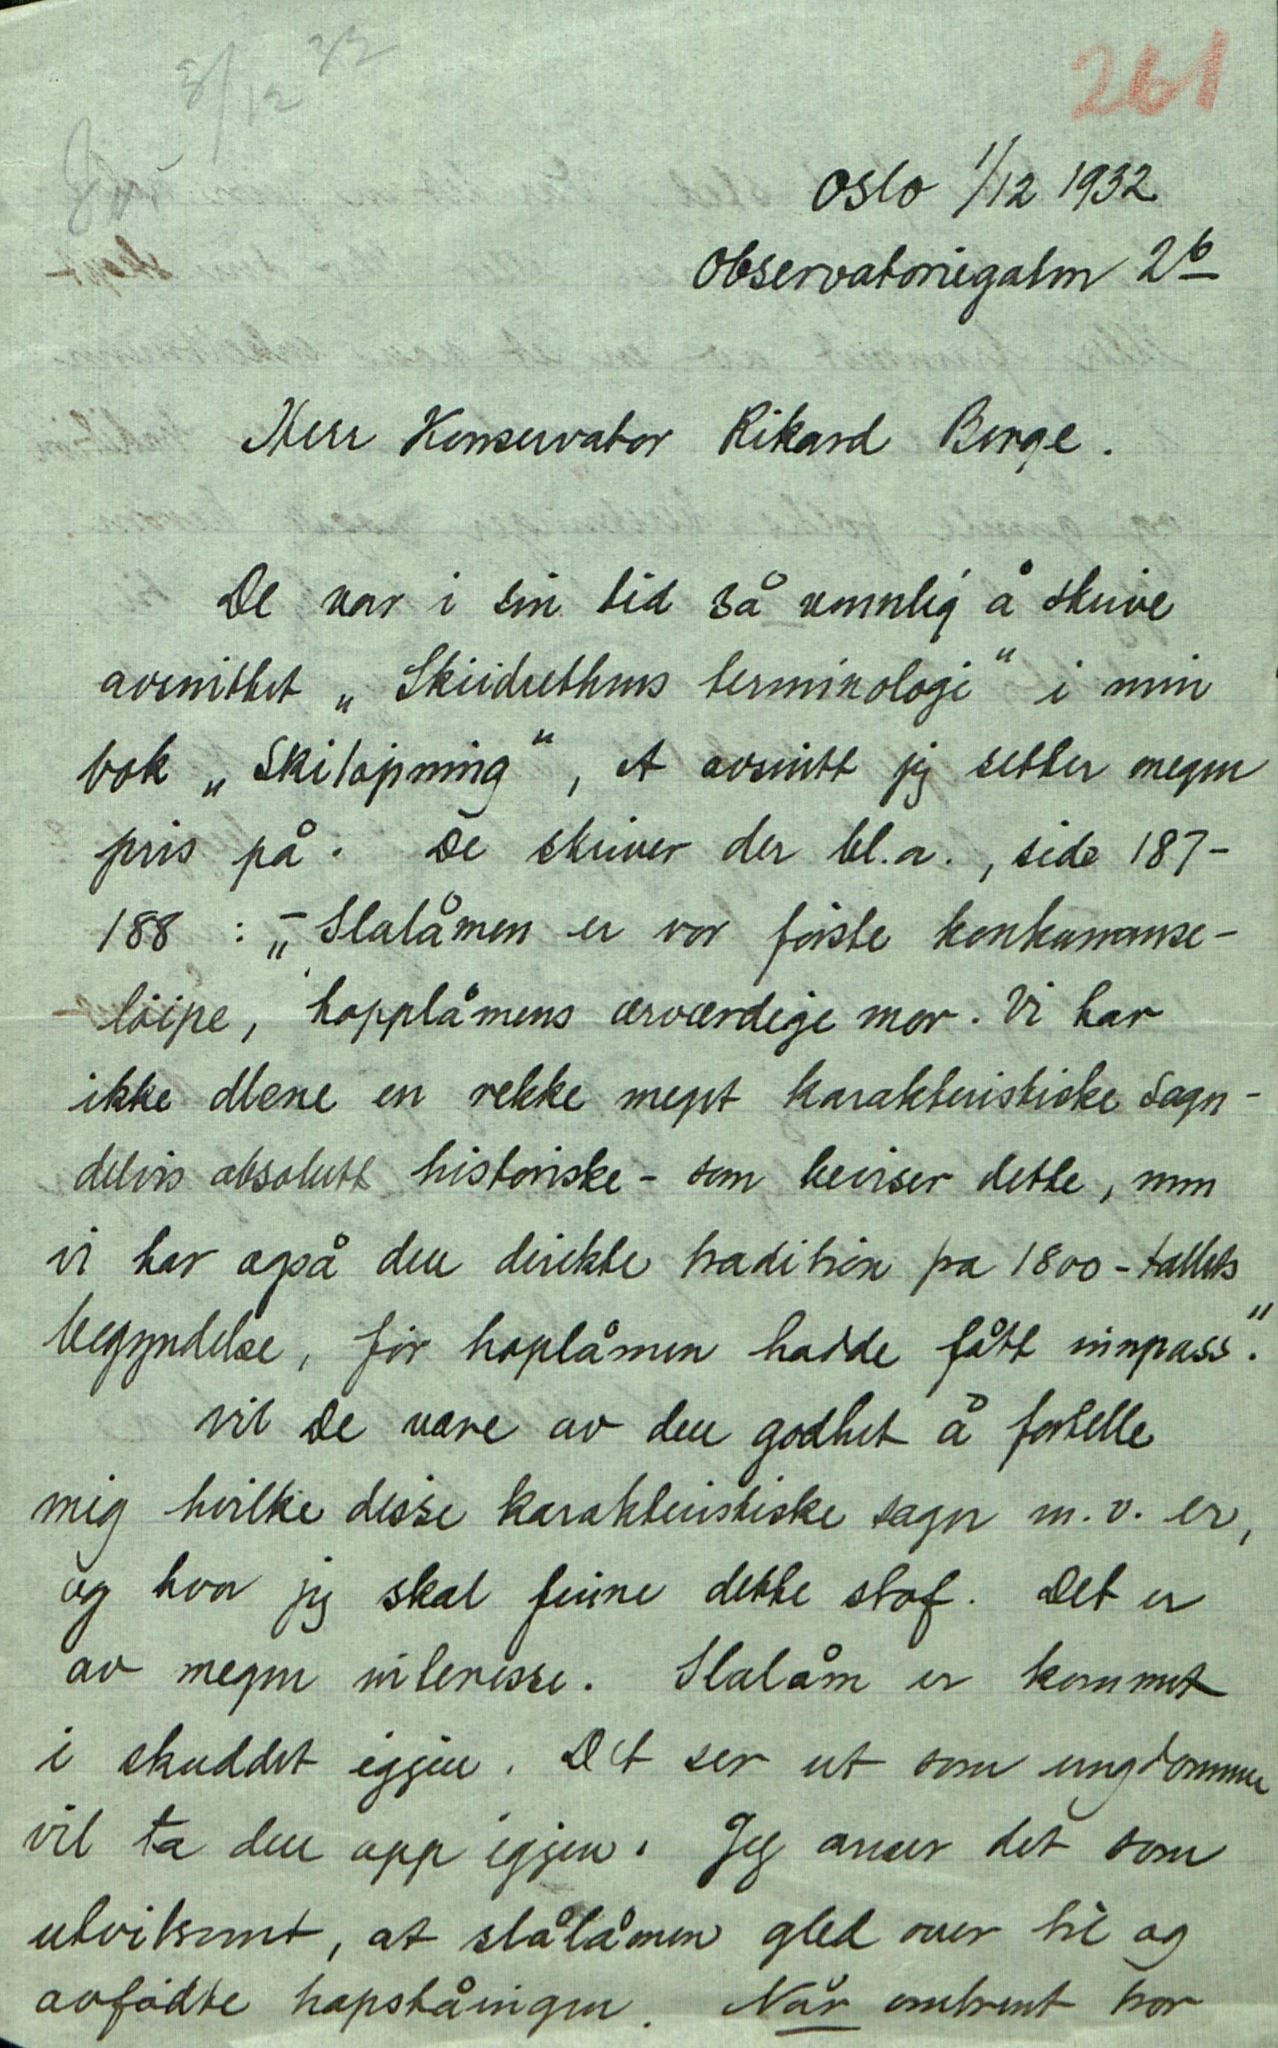 8/12 32
261
Oslo 1/12 1932
Observatoriegaten 2b
Herr Konservator Rikard Berge.
De var i sin tid så vennlig å skrive
avsnittet „Skiidrettens terminologi" i min
bok „Skiløpning", et avsnitt jeg setter megen
pris på. De skriver der bl.a., side 187-
188 : „– Slalåmen er vor første konkurranse-
løipe, hopplåmens ærværdige mor. Vi har
ikke alene en rekke meget karakteristiske sagn -
delvis absolutt historiske - som beviser dette, men
vi har også den direkte tradition fra 1800-tallets
begyndelse, før hoplåmen hadde fått innpass."
Vil De være av den godhet å fortelle
mig hvilke disse karakteristiske sagn m.v. er,
og hvor jeg skal finne dette stof. Det er
av megen interesse. Slalåm er kommet
i skuddet igjen. Det ser ut som ungdommen
vil ta den opp igjen. Jeg anser det som
utvilsomt, at slålåmen gled over til og
avfødte hopståingen. Når omtrent tror